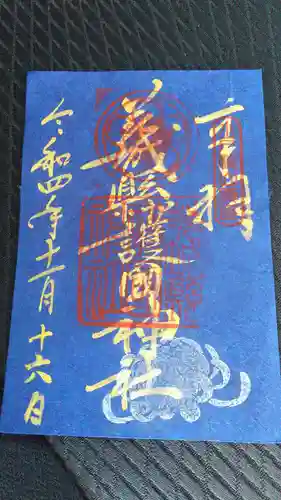 奉拝
茨城縣護國神社
令和四年十一月十六日